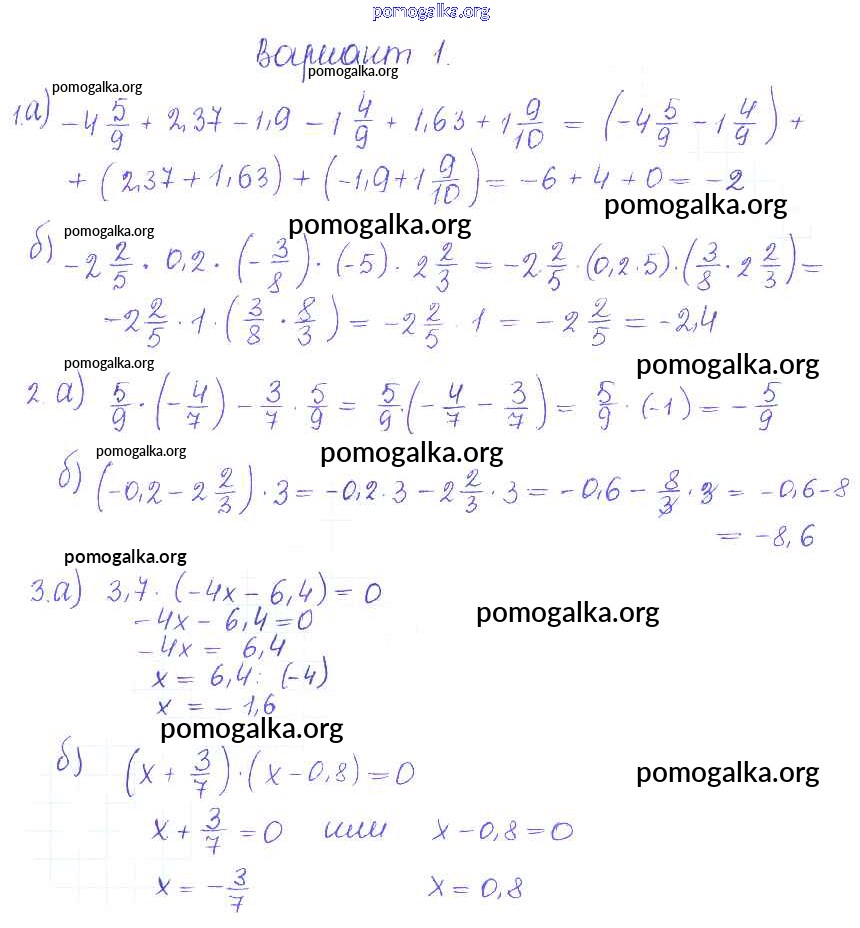 pomogalka.org
Вариант 1.
pomogalka.org
pomogalka.org
1.а) -4 5/9 + 2,37 - 1,9 - 1 4/9 + 1,63 + 1 9/10 = (-4 5/9 - 1 4/9) +
+ (2,37 + 1,63) + (-1,9 + 1 9/10) = -6 + 4 + 0 = -2
pomogalka.org
pomogalka.org
pomogalka.org
б) -2 2/5 · 0,2 · (-3/8) · (-5) · 2 2/3 = -2 2/5 · (0,2 · 5) · (3/8 · 2 2/3) =
-2 2/5 · 1 · (3/8 · 8/3) = -2 2/5 · 1 = -2 2/5 = -2,4
pomogalka.org
pomogalka.org
2. а) 5/9 · (-4/7) - 3/7 · 5/9 = 5/9 · (-4/7 - 3/7) = 5/9 · (-1) = -5/9
pomogalka.org
pomogalka.org
б) (-0,2 - 2 2/3) · 3 = -0,2 · 3 - 2 2/3 · 3 = -0,6 - 8/3 · 3 = -0,6 - 8
= -8,6
pomogalka.org
3.а) 3,7 · (-4х - 6,4) = 0
pomogalka.org
-4х - 6,4 = 0
-4х = 6,4
х = 6,4 : (-4)
х = -1,6
pomogalka.org
б) (х + 3/7) · (х - 0,8) = 0
pomogalka.org
х + 3/7 = 0 или х - 0,8 = 0
х = -3/7 х = 0,8